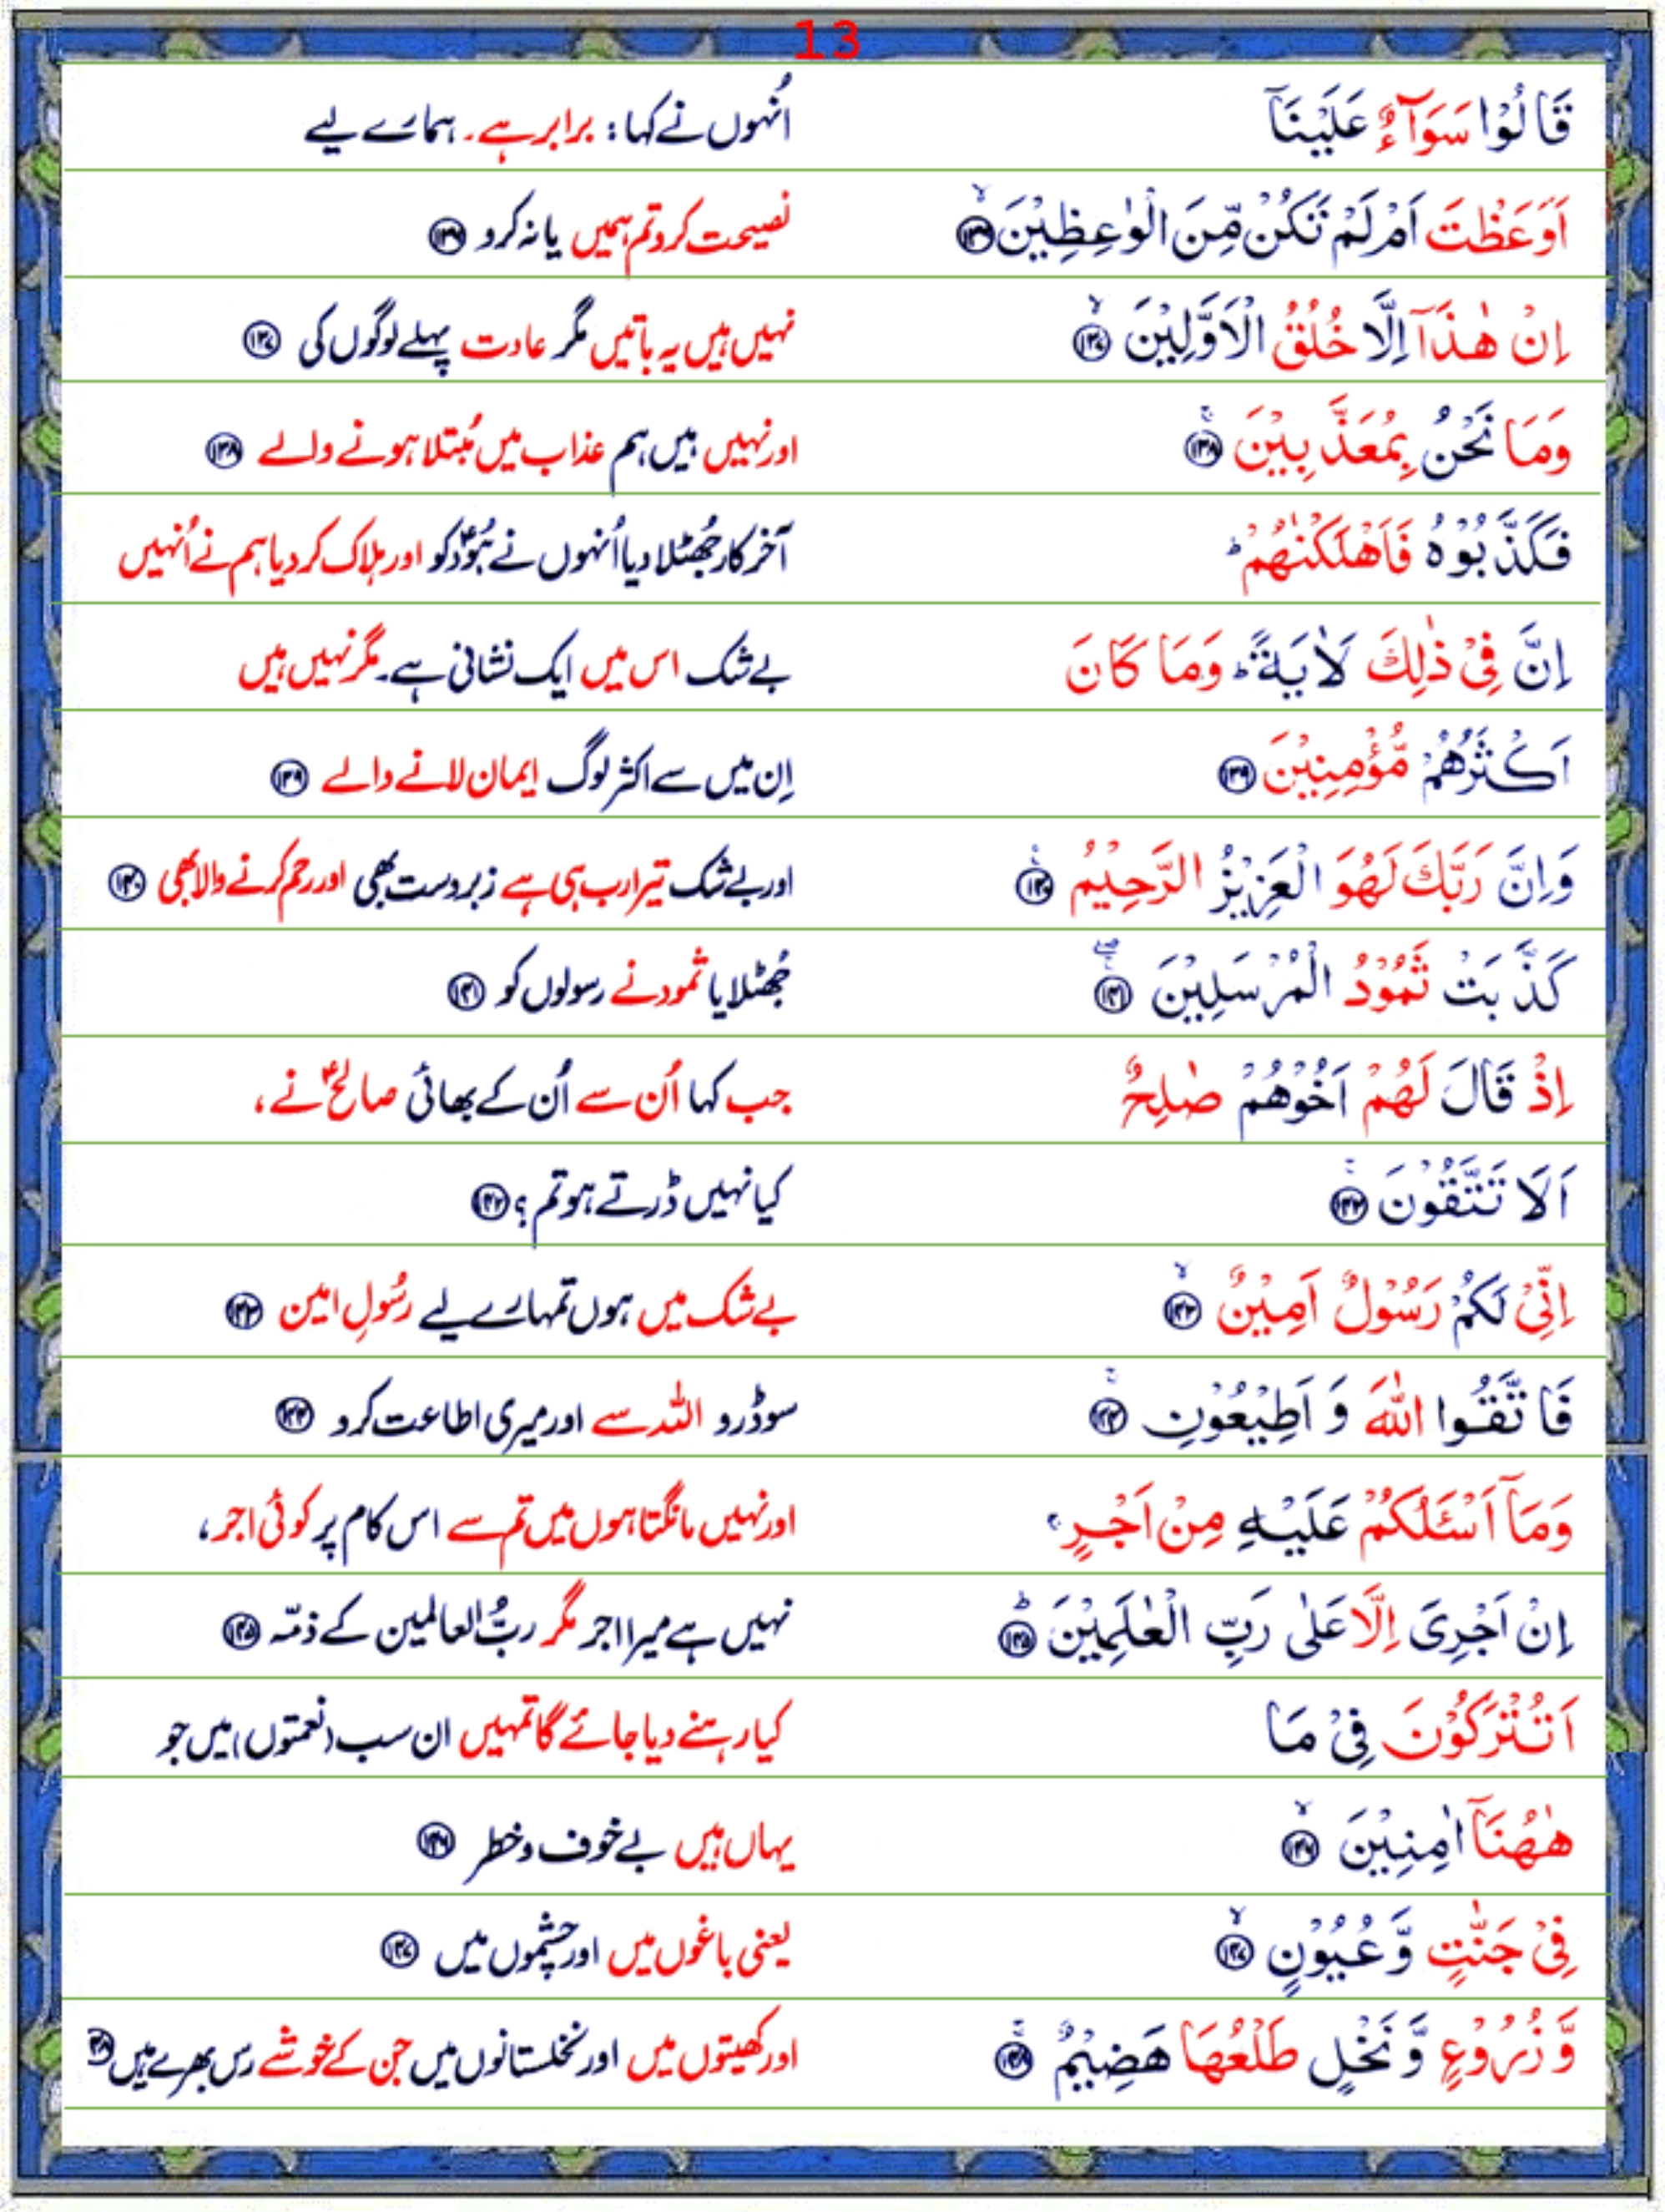 13
قَالُوْا سَوَآءٌ عَلَيْنَآ انہوں نے کہا: برابر ہے۔ ہمارے لیے
اَوَعَظْتَ اَمْ لَمْ تَكُنْ مِّنَ الْوٰعِظِيْنَ ۙ ﴿۱۳۶﴾ نصیحت کرو تم ہمیں یا نہ کرو ﴿۱۳۶﴾
اِنْ هٰذَآ اِلَّا خُلُقُ الْاَوَّلِيْنَ ۙ ﴿۱۳۷﴾ نہیں ہیں یہ باتیں مگر عادت پہلے لوگوں کی ﴿۱۳۷﴾
وَمَا نَحْنُ بِمُعَذَّبِيْنَ ۚ ﴿۱۳۸﴾ اور نہیں ہیں ہم عذاب میں مُبتلا ہونے والے ﴿۱۳۸﴾
فَكَذَّبُوْهُ فَاَهْلَكْنٰهُمْ ؕ آخر کار جُھٹلا دیا اُنہوں نے ہُودؑ کو اور ہلاک کر دیا ہم نے اُنہیں
اِنَّ فِيْ ذٰلِكَ لَاٰيَةً ؕ وَمَا كَانَ بے شک اس میں ایک نشانی ہے۔ مگر نہیں ہیں
اَكْثَرُهُمْ مُّؤْمِنِيْنَ ﴿۱۳۹﴾ اِن میں سے اکثر لوگ ایمان لانے والے ﴿۱۳۹﴾
وَاِنَّ رَبَّكَ لَهُوَ الْعَزِيْزُ الرَّحِيْمُ ۚ ﴿۱۴۰﴾ اور بے شک تیرا رب ہی ہے زبردست بھی اور رحم کرنے والا بھی ﴿۱۴۰﴾
كَذَّبَتْ ثَمُوْدُ الْمُرْسَلِيْنَ ۚۖ ﴿۱۴۱﴾ جُھٹلایا ثمود نے رسولوں کو ﴿۱۴۱﴾
اِذْ قَالَ لَهُمْ اَخُوْهُمْ صٰلِحٌ جب کہا اُن سے اُن کے بھائی صالحؑ نے،
اَلَا تَتَّقُوْنَ ۚ ﴿۱۴۲﴾ کیا نہیں ڈرتے ہو تم؟ ﴿۱۴۲﴾
اِنِّيْ لَكُمْ رَسُوْلٌ اَمِيْنٌ ۙ ﴿۱۴۳﴾ بے شک میں ہوں تمہارے لیے رسُولِ امین ﴿۱۴۳﴾
فَاتَّقُوا اللّٰهَ وَ اَطِيْعُوْنِ ۚ ﴿۱۴۴﴾ سو ڈرو اللہ سے اور میری اطاعت کرو ﴿۱۴۴﴾
وَمَآ اَسْـَٔلُكُمْ عَلَيْهِ مِنْ اَجْرٍ ۚ اور نہیں مانگتا ہوں میں تم سے اس کام پر کوئی اجر،
اِنْ اَجْرِيَ اِلَّا عَلٰى رَبِّ الْعٰلَمِيْنَ ؕ ﴿۱۴۵﴾ نہیں ہے میرا اجر مگر ربُّ العالمین کے ذمّہ ﴿۱۴۵﴾
اَتُتْرَكُوْنَ فِيْ مَا کیا رہنے دیا جائے گا تمہیں ان سب (نعمتوں) میں جو
هٰهُنَآ اٰمِنِيْنَ ۙ ﴿۱۴۶﴾ یہاں ہیں بے خوف و خطر ﴿۱۴۶﴾
فِيْ جَنّٰتٍ وَّعُيُوْنٍ ۙ ﴿۱۴۷﴾ یعنی باغوں میں اور چشموں میں ﴿۱۴۷﴾
وَّزُرُوْعٍ وَّنَخْلٍ طَلْعُهَا هَضِيْمٌ ۚ ﴿۱۴۸﴾ اور کھیتوں میں اور نخلستانوں میں جن کے خوشے رس بھرے ہیں ﴿۱۴۸﴾